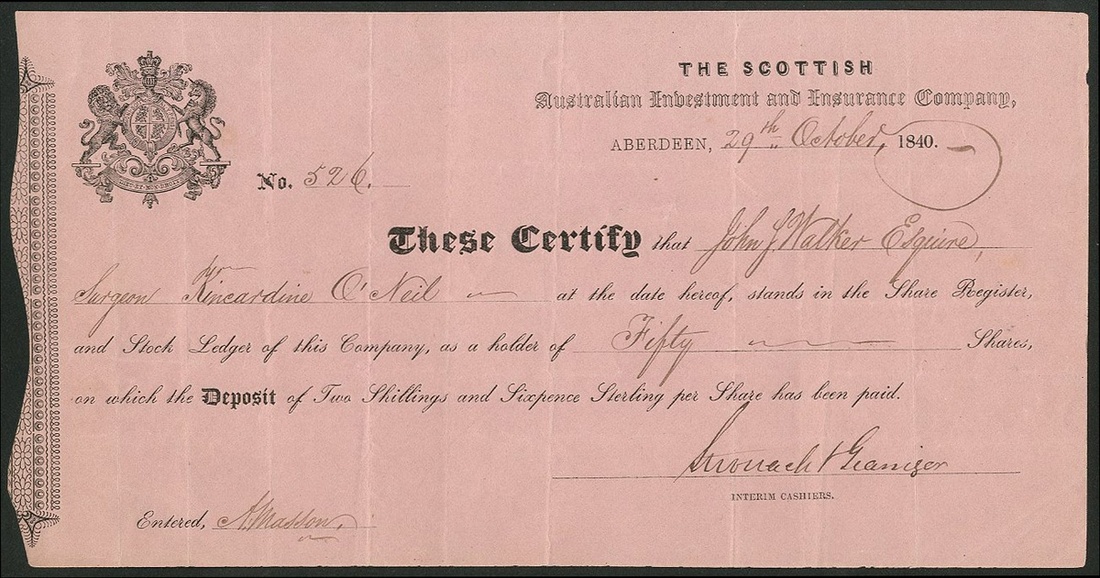 THE SCOTTISH
Australian Investment and Insurance Company,
ABERDEEN, 29th October, 1840.
No. 526.
These Certify that John J Walker Esquire,
Surgeon Kincardine O'Neil at the date hereof, stands in the Share Register,
and Stock Ledger of this Company, as a holder of Fifty Shares,
on which the Deposit of Two Shillings and Sixpence Sterling per Share has been paid.
Stronach &
INTERIM CASHIERS.
Entered, A Masson.